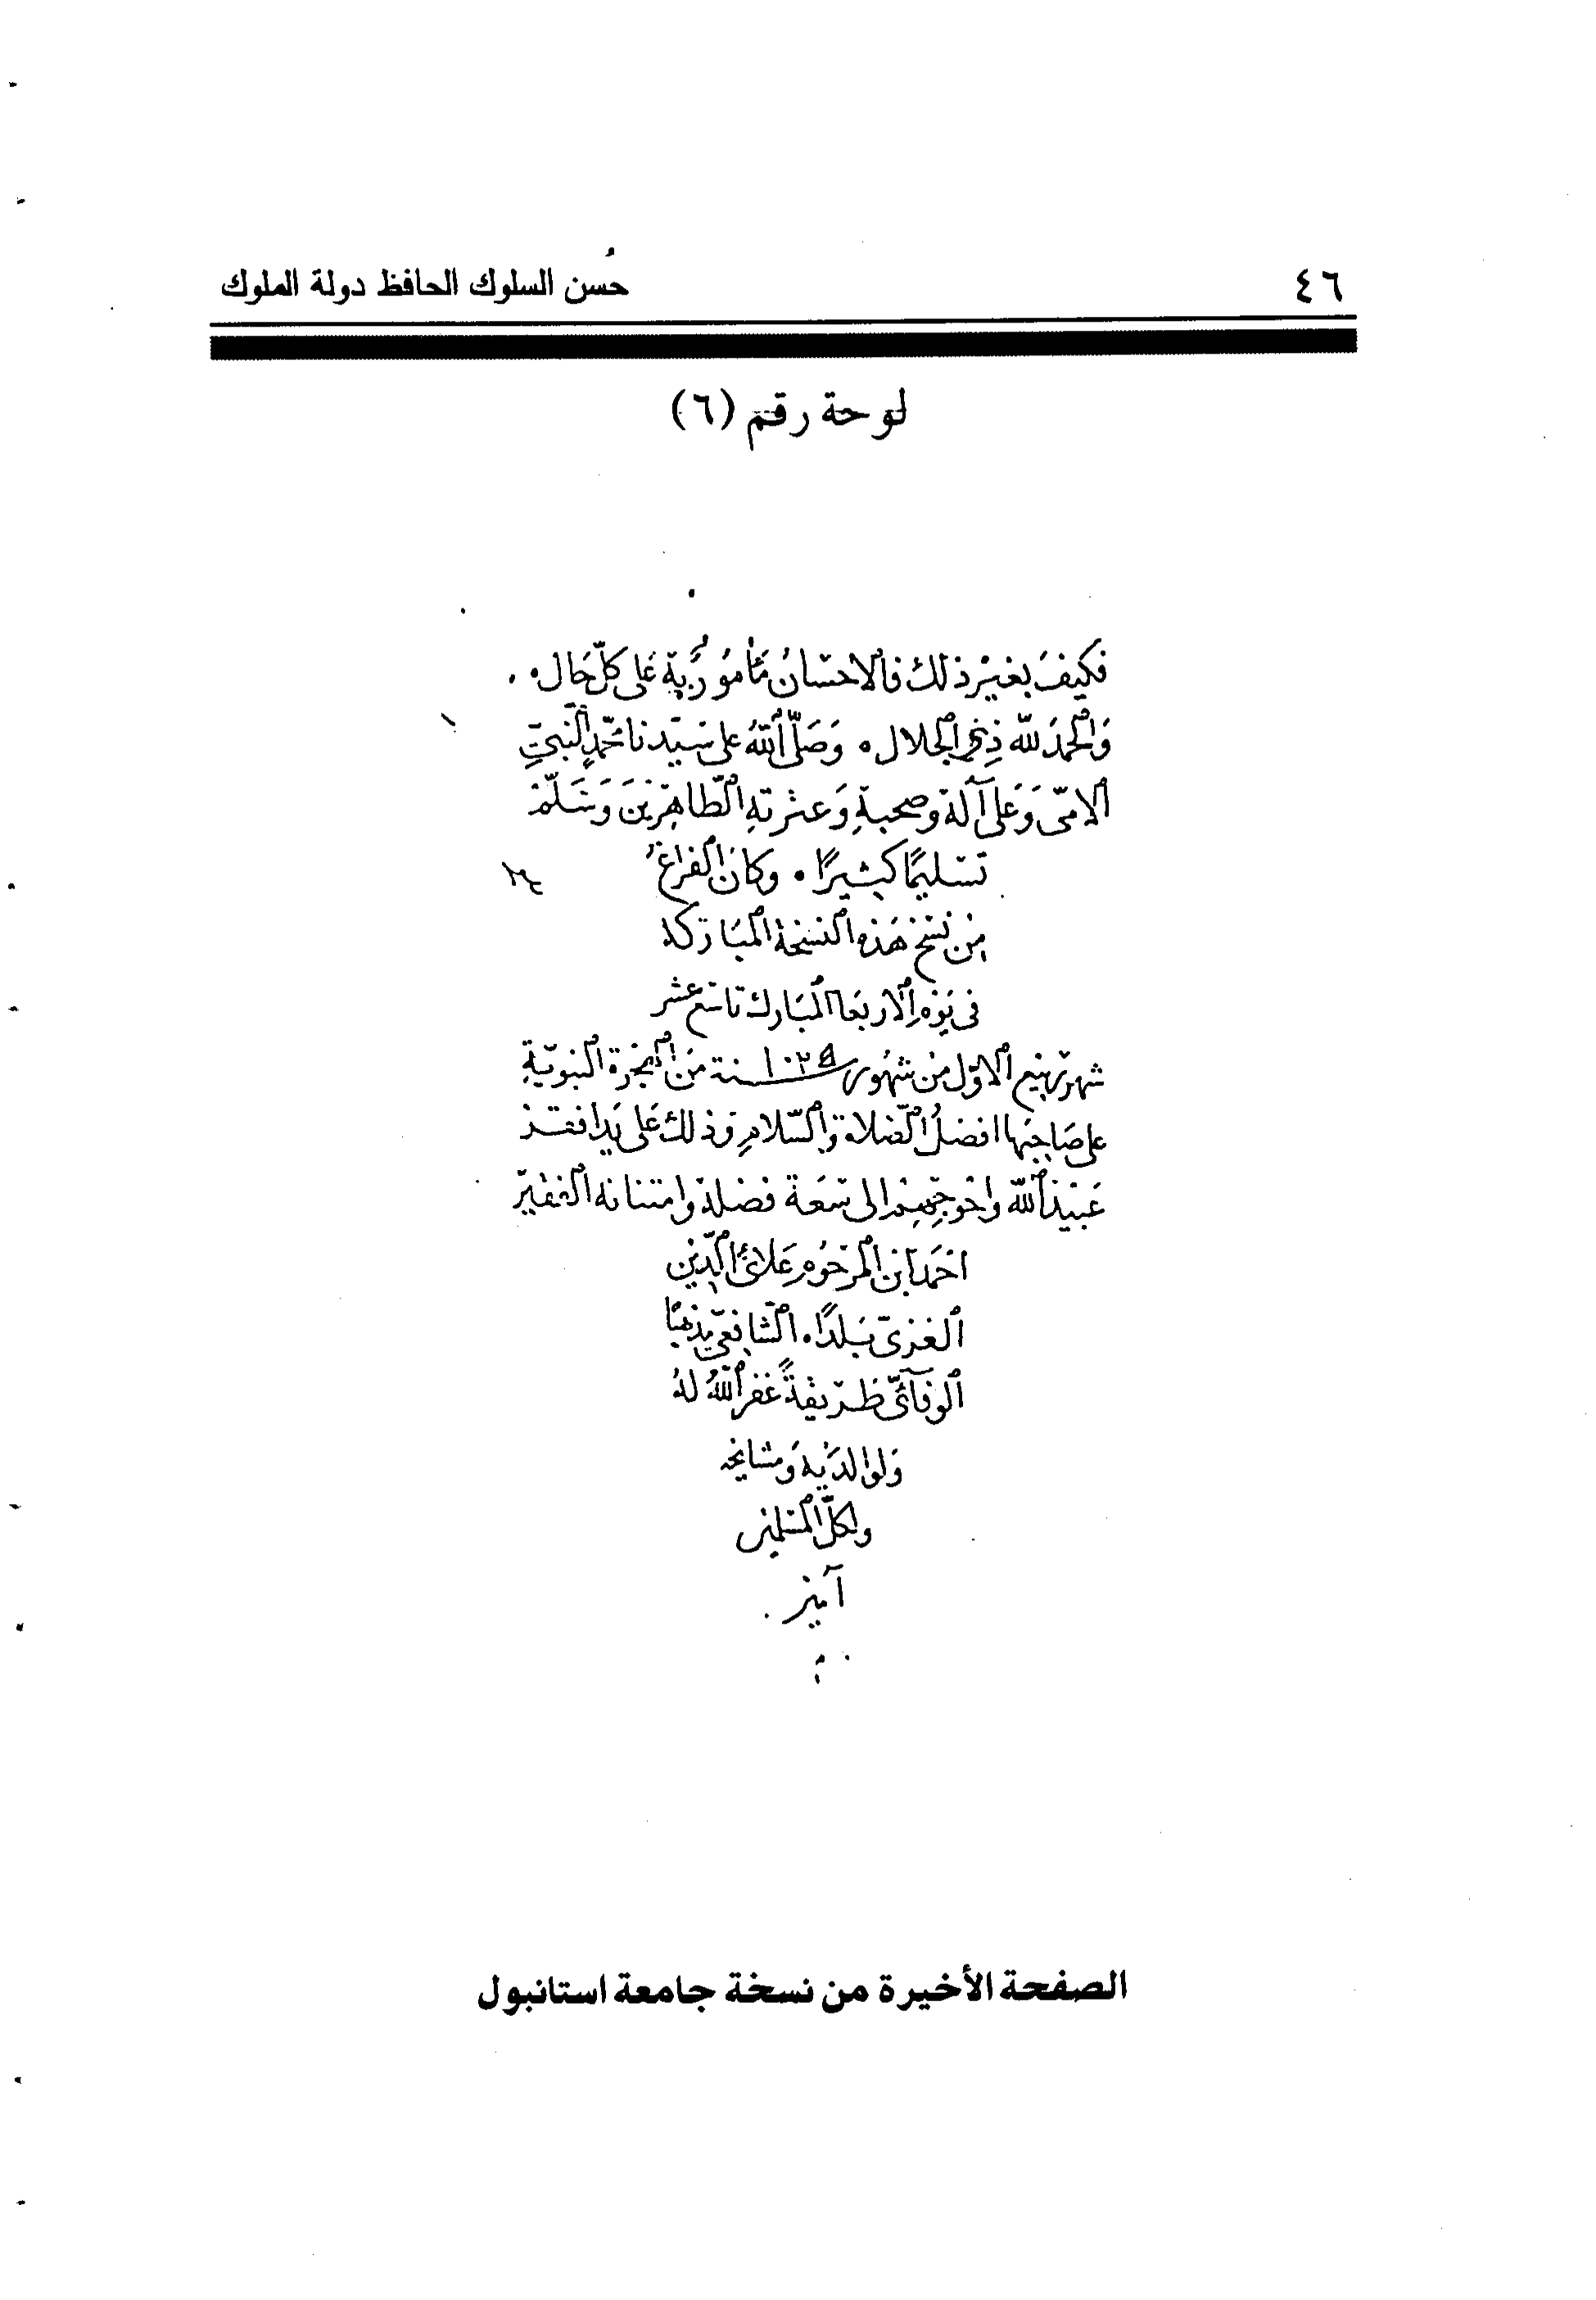 ٤٦
حُسن السلوك الحافظ دولة الملوك
لوحة رقم (٦)
فكيفَ بغيْر ذلك فالاحسَانُ مَأمُورٌ بِهِ عَلى كلّ حَال.
وَالحمدُ لله ذِي الجلال. وَصَلّى اللهُ على سَيّدنا محمّدٍ النّبيّ
الامّى وَعَلى آله وصحبهِ وَعترتهِ الطّاهِرِينَ وَسَلّمَ
تسليمًا كثيرًا. وكان الفراغُ
مِن نسْخ هَذه النسخة المبَاركه
فى يَوْمِ الاربَعا المبَارك تاسع عشر
شهر رَبيع الاوّل من شهُور سنة ١٠٢٥ مِن الهجرة النبَويّةِ
على صَاحبِهَا افضلُ الصّلاة وَالسّلامِ وذلك عَلى يَد افقر
عَبيد الله وَاحْوجِهِم الى سَعَة فضله وامتنانه الفقير
احْمَد ابن المرْحُوم عَلائ الدّين
الغزىّ بَلدًا. الشّافعىّ مذهبًا
الوفآئىّ طَريقةً غفر اللهُ لهُ
وَلوَالدَيْه وَمشايخه
ولكلّ المسلمين
آمين
الصفحة الأخيرة من نسخة جامعة استانبول